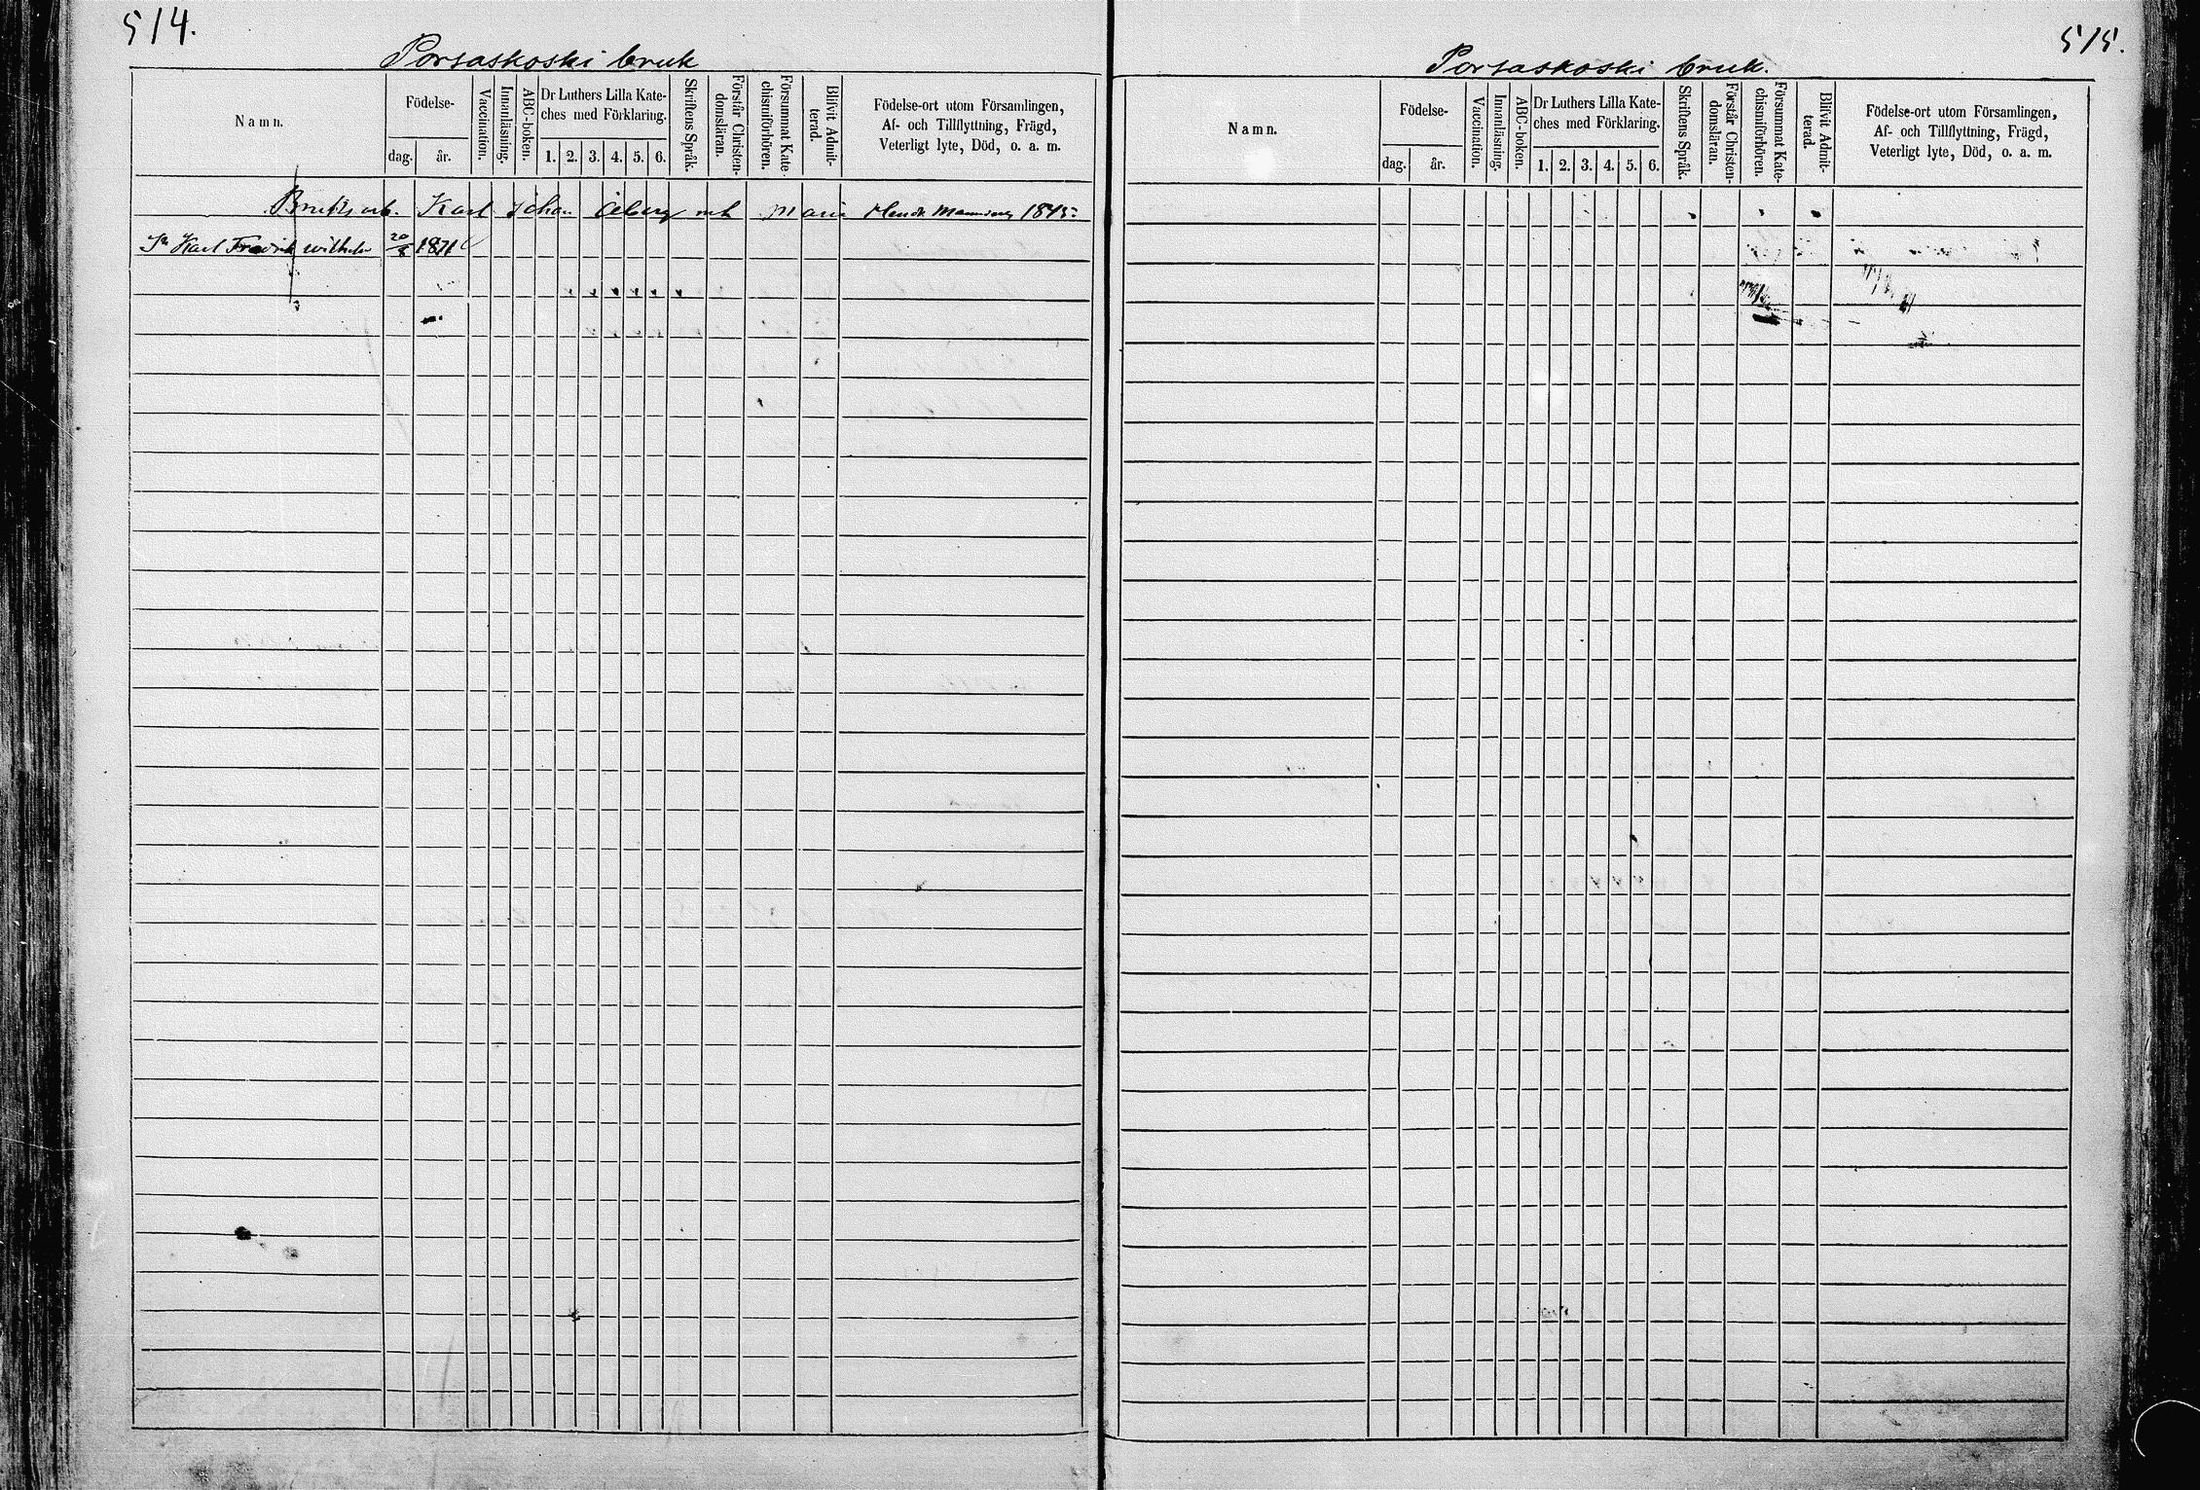 514.
Porsaskoski bruk
Namn.
Födelse-
dag.
år.
Vaccination.
Innanläsning.
ABC-boken.
Dr Luthers Lilla Kate-
ches med Förklaring.
1. 2. 3. 4. 5. 6.
Skriftens Språk.
Förstår Christen-
domsläran.
Försummat Kate-
chismiförhören.
Blifvit Admit-
terad.
Födelse-ort utom Församlingen,
Af- och Tillflyttning, Frägd,
Veterligt lyte, Död, o. a. m.
Bruksarb. Karl Johan Åberg och Maria 1845
Karl Fredrik Wilhelm 20 1871
515.
Porsaskoski bruk.
Namn.
Födelse-
dag.
år.
Vaccination.
Innanläsning.
ABC-boken.
Dr Luthers Lilla Kate-
ches med Förklaring.
1. 2. 3. 4. 5. 6.
Skriftens Språk.
Förstår Christen-
domsläran.
Försummat Kate-
chismiförhören.
Blifvit Admit-
terad.
Födelse-ort utom Församlingen,
Af- och Tillflyttning, Frägd,
Veterligt lyte, Död, o. a. m.